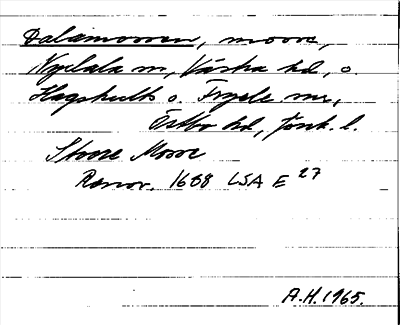 Dalamossen, mosse,
Nydala sn, Västra hd, o.
Hagshults o. Fryele snr,
Östbo hd, Jönk. l.
Stoore Mosse
Rannov. 1688 LSA E 27
A.H. 1965.